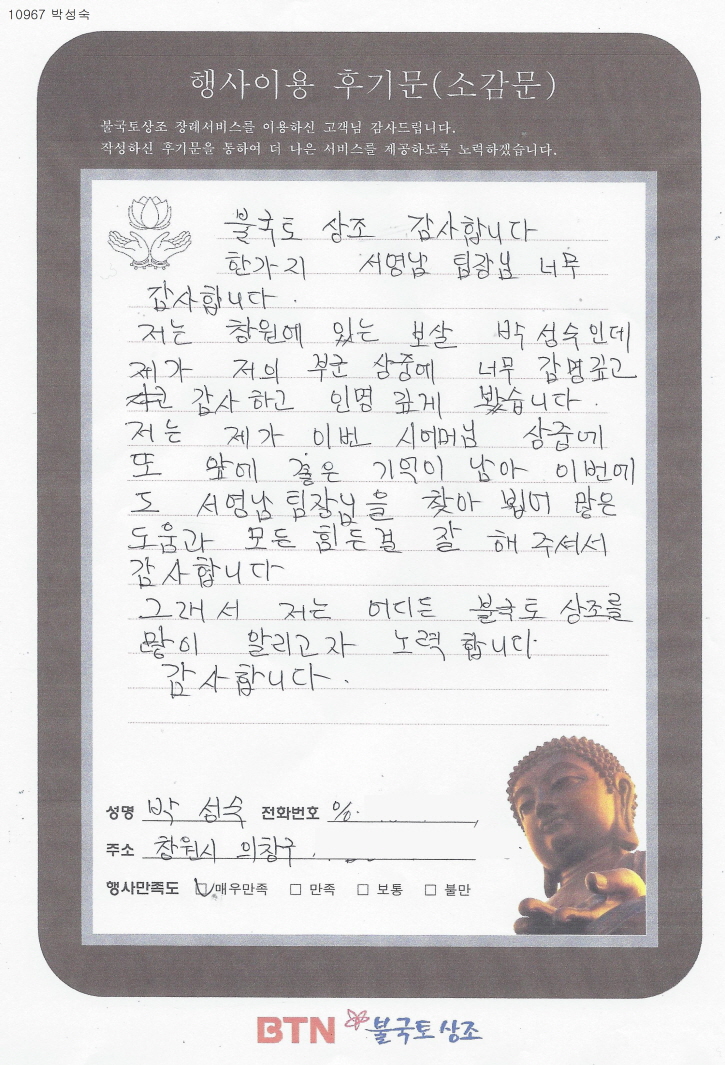 10967 박성숙
행사이용 후기문(소감문)
불국토상조 장례서비스를 이용하신 고객님 감사드립니다.
작성하신 후기문을 통하여 더 나은 서비스를 제공하도록 노력하겠습니다.
불국토 상조 감사합니다
한가지 서영남 팀장님 너무
감사합니다.
저는 창원에 있는 보살 박성숙인데
제가 저의 부군 상중에 너무 감명깊고
감사하고 인명 깊게 봤습니다.
저는 제가 이번 시어머님 상중에
또 앞에 좋은 기억이 남아 이번에
도 서영남 팀장님을 찾아 뵙어 많은
도움과 모든 힘든걸 잘 해 주셔서
감사합니다
그래서 저는 어디든 불국토 상조를
많이 알리고자 노력 합니다
감사합니다.
성명 박성숙 전화번호 01
주소 창원시 의창구
행사만족도 ☑ 매우만족 □ 만족 □ 보통 □ 불만
BTN 불국토상조